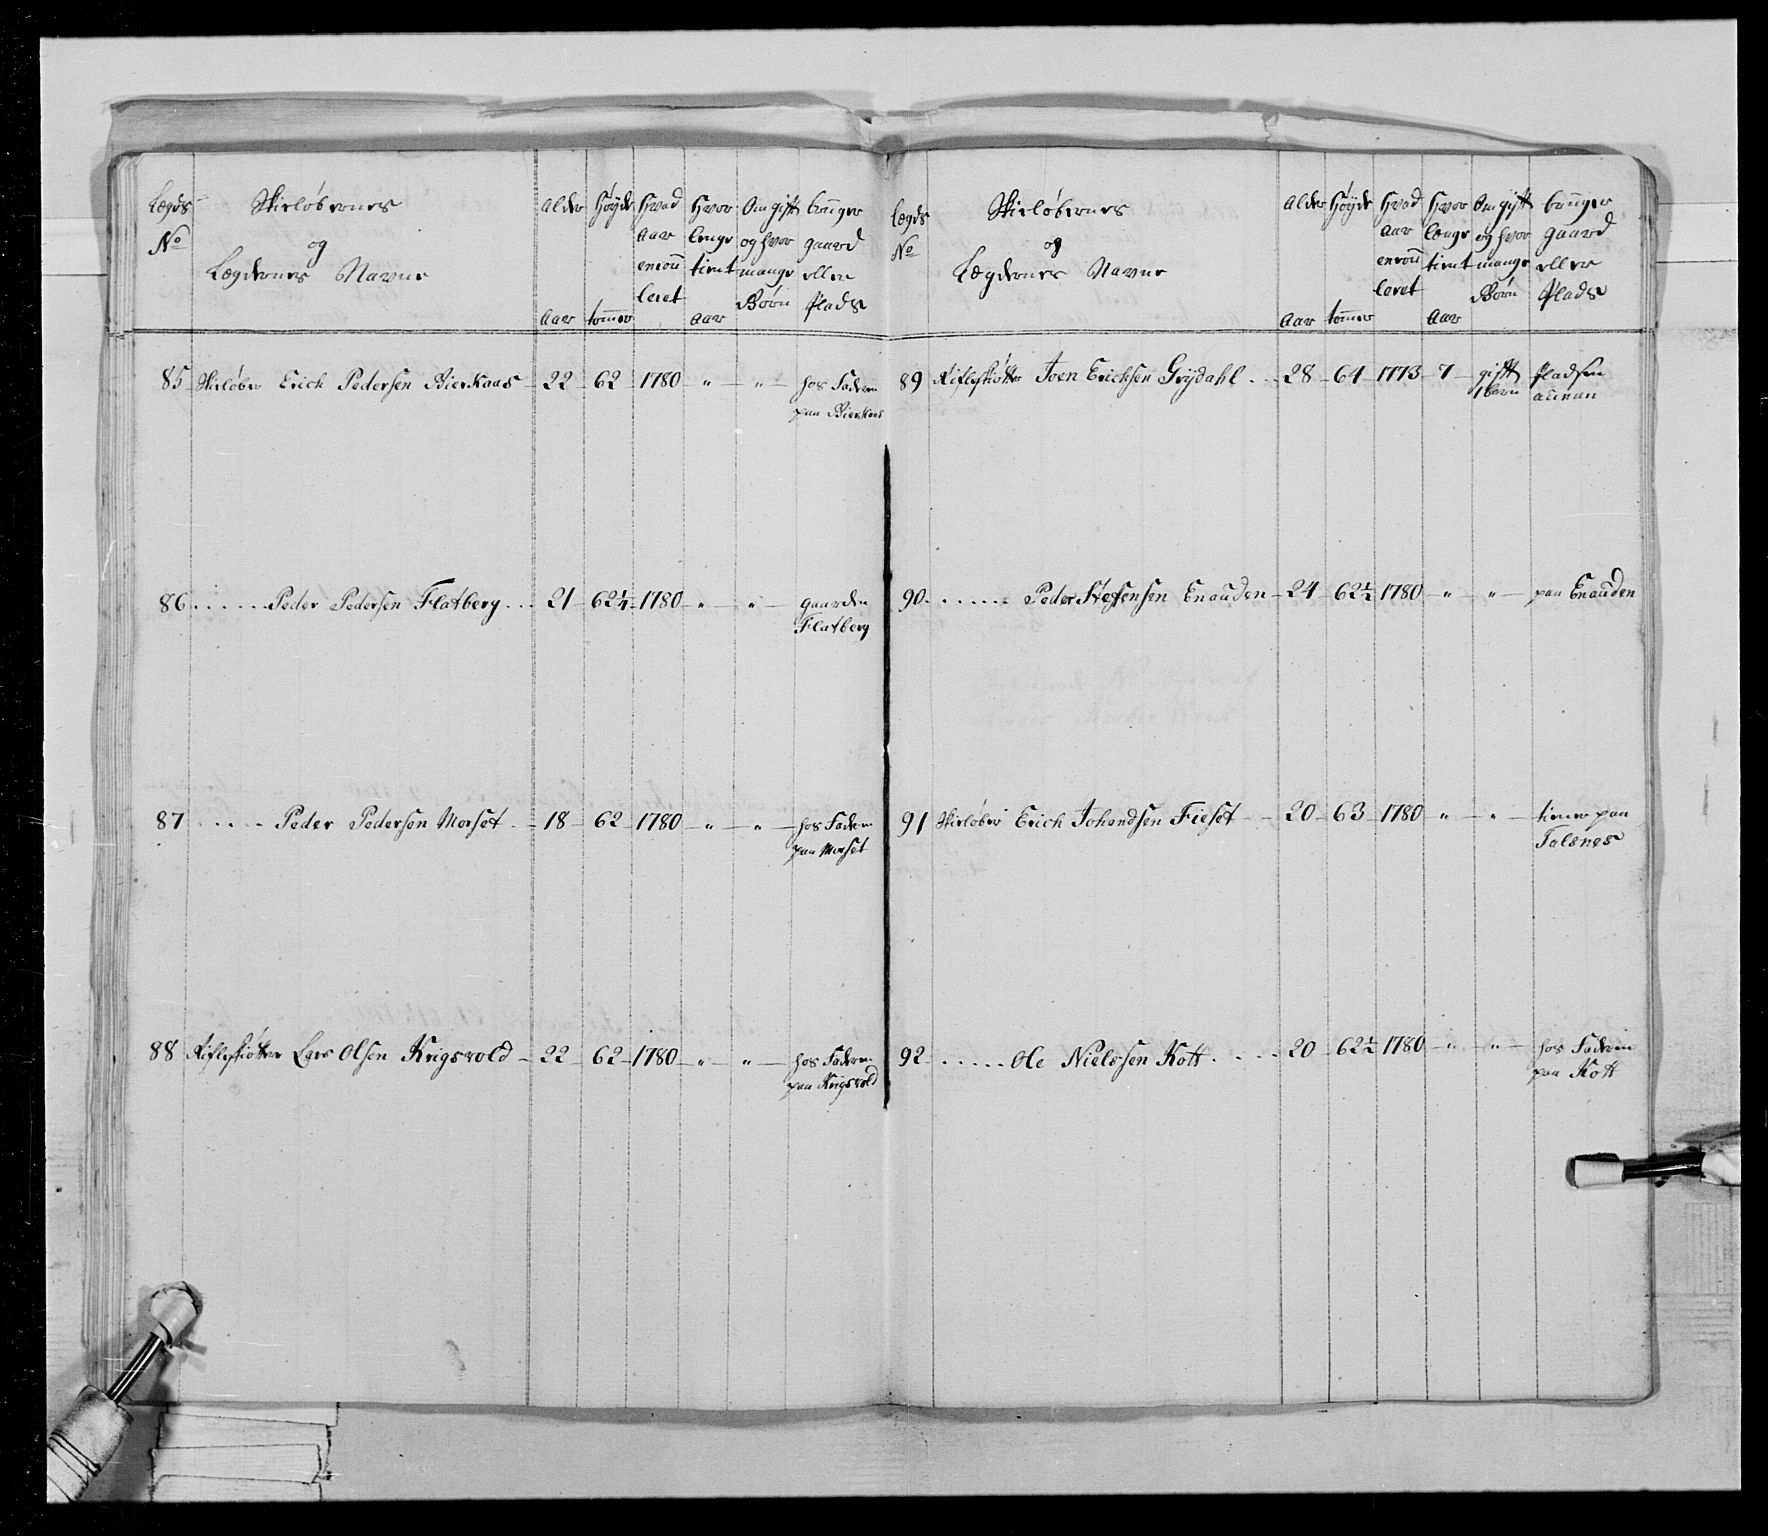 Lægds No
Skieløbernes og Lægdernes Navne
Alder Aar
Høyde tommer
Hvad Aar enroulleret
Hvor lenge tient Aar
Om gift og hvor mange Børn
bruger gaard eller Plads
85 Skieløber Erich Pedersen Bierkaas - 22 - 62 - 1780 - " - " - hos Faderen
paa Bierkaas
86 . . . . . . Peder Pedersen Flatberg . . . 21 - 62 1/4 - 1780 - " - " - gaarden
Flatberg
87 . . . . - Peder Pedersen Morset - 18 - 62 - 1780 - " - " - hos Faderen
paa Morset
88 Riflyskiøtter Lars Olsen Krigsvold - 22 - 62 - 1780 - " - " - hos Faderen
paa Krigsvold
Lægds No
Skieløbernes og Lægdernes Navne
Alder Aar
Høyde tommer
Hvad Aar enroulleret
Hvor længe tient Aar
Om gift og hvor mange Børn
bruger gaard eller Plads
89 Riflyskiøtter Joen Erichsen Grÿdahl . . - 28 - 64 - 1773 - 7 - gift Pladsen
1 barn aunan
90 . . . . . . Peder Steffensen Enauden - 24 - 62 1/2 - 1780 - " - " - paa Enauden
91 Skieløber Erich Johandsen Fieset - 20 - 63 - 1780 - " - " - tiener paa
Talsnes
92 . . . . . . Ole Nielssen Kott . . . . 20 - 62 1/2 - 1780 - " - " - hos Faderen
paa Kott